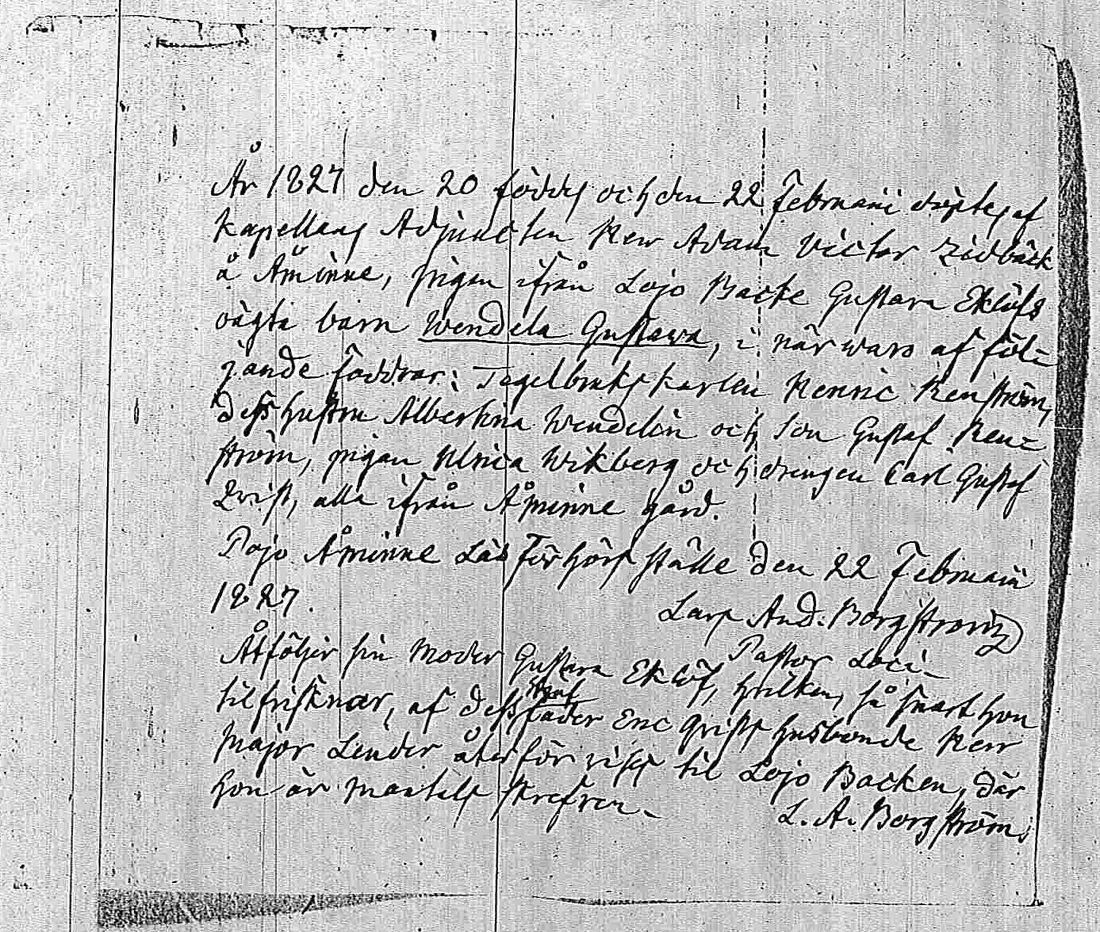 År 1827 den 20 föddes och den 22 Februarii döptes af
Kapellans Adjuncten Herr Adam Victor Zidbäck
å Åminne, pigan ifrån Lojo Backe Gustava Eklöfs
oägta barn Wendela Gustava, i närwaro af föl=
jande faddrar: Tegelbrukskarlen Henric Renström,
dess hustru Albertina Wendelin och Son Gustaf Ren=
ström, pigan Ulrica Wikberg och drengen Carl Gustaf
Qvist, alla ifrån Åminne gård.
Pojo Åminne Läsförhörs ställe den 22 Februarii
1827.
Lars And. Borgström
Pastor Loci.
Åtföljer sin Moder Gustava Eklöf, hvilken, så snart hon
tilfrisknar, af dess
fader Eric Qvists husbonde Herr
Major Linder återförvises til Lojo Backen, där
hon är mantals skrefven.
L. A. Borgström.